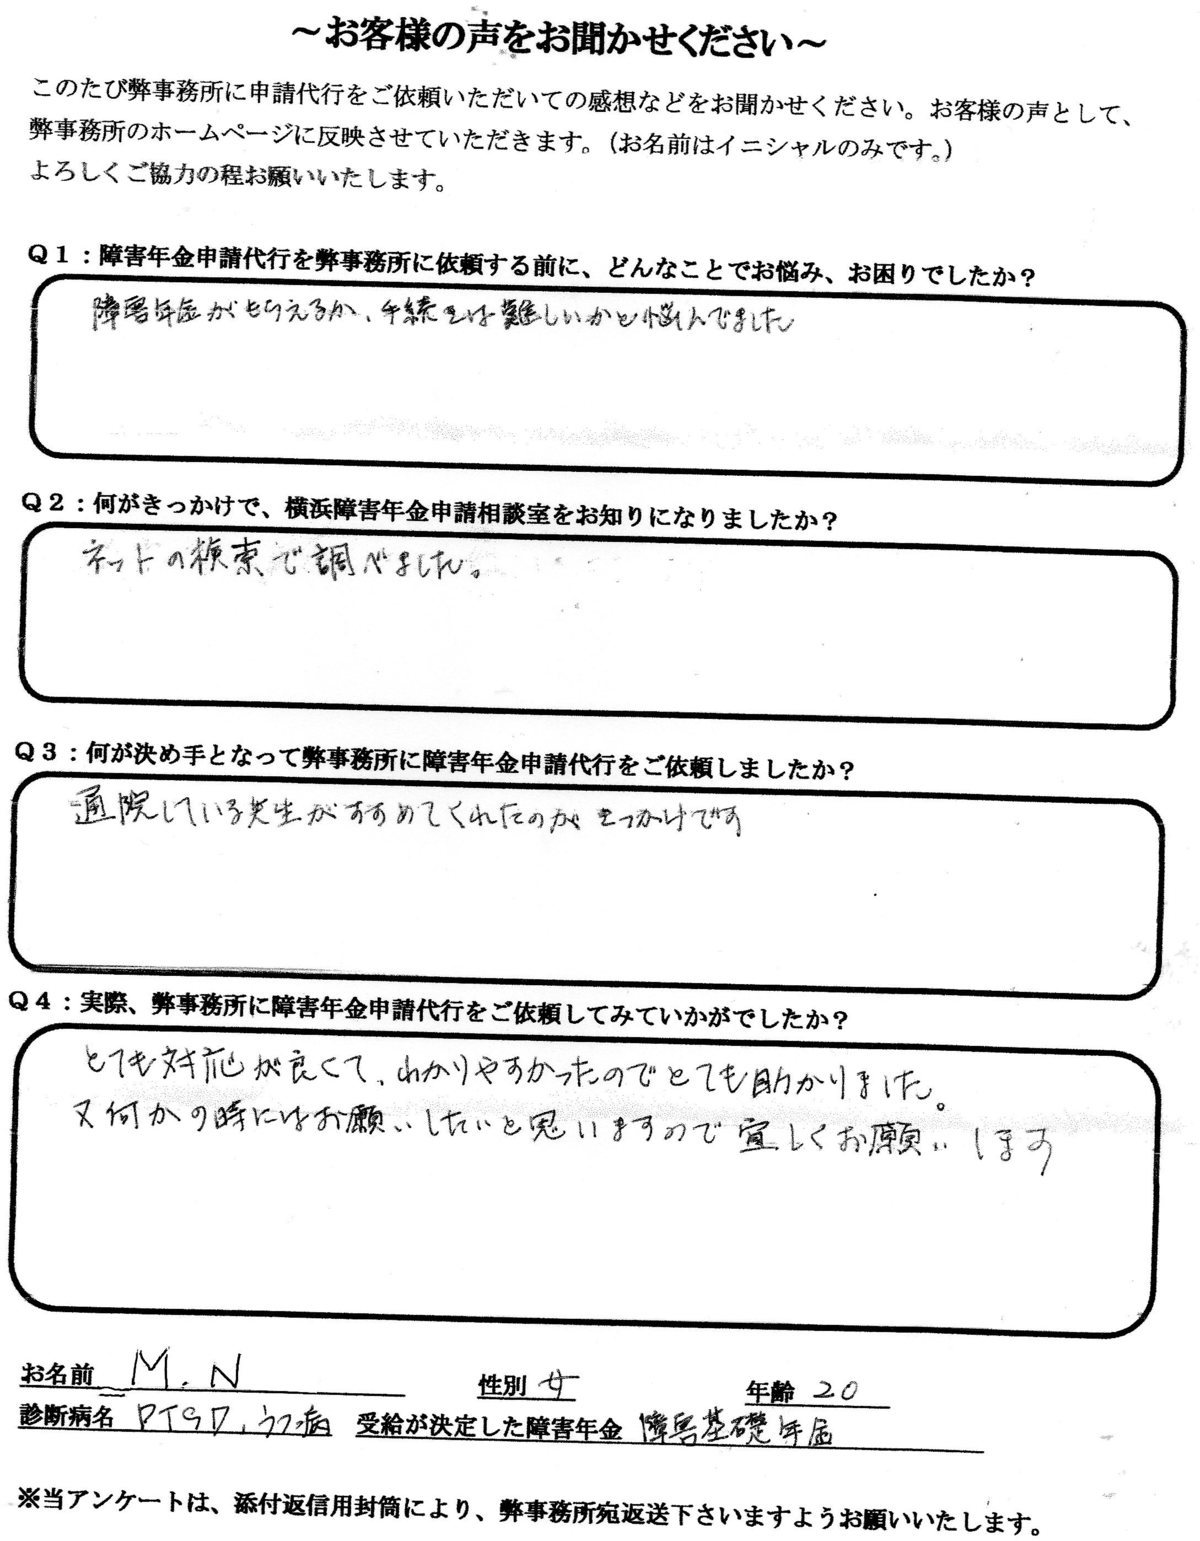 ～お客様の声をお聞かせください～
このたび弊事務所に申請代行をご依頼いただいての感想などをお聞かせください。お客様の声として、
弊事務所のホームページに反映させていただきます。（お名前はイニシャルのみです。）
よろしくご協力の程お願いいたします。
Ｑ１：障害年金申請代行を弊事務所に依頼する前に、どんなことでお悩み、お困りでしたか？
障害年金がもらえるか、手続きは難しいかと悩んでました
Ｑ２：何がきっかけで、横浜障害年金申請相談室をお知りになりましたか？
ネットの検索で調べました。
Ｑ３：何が決め手となって弊事務所に障害年金申請代行をご依頼しましたか？
通院している先生がすすめてくれたのがきっかけです
Ｑ４：実際、弊事務所に障害年金申請代行をご依頼してみていかがでしたか？
とても対応が良くて、わかりやすかったのでとても助かりました。
又何かの時にはお願いしたいと思いますので宜しくお願いします
お名前 M.N 性別 女 年齢 20
診断病名 PTSD、うつ病 受給が決定した障害年金 障害基礎年金
※当アンケートは、添付返信用封筒により、弊事務所宛返送下さいますようお願いいたします。